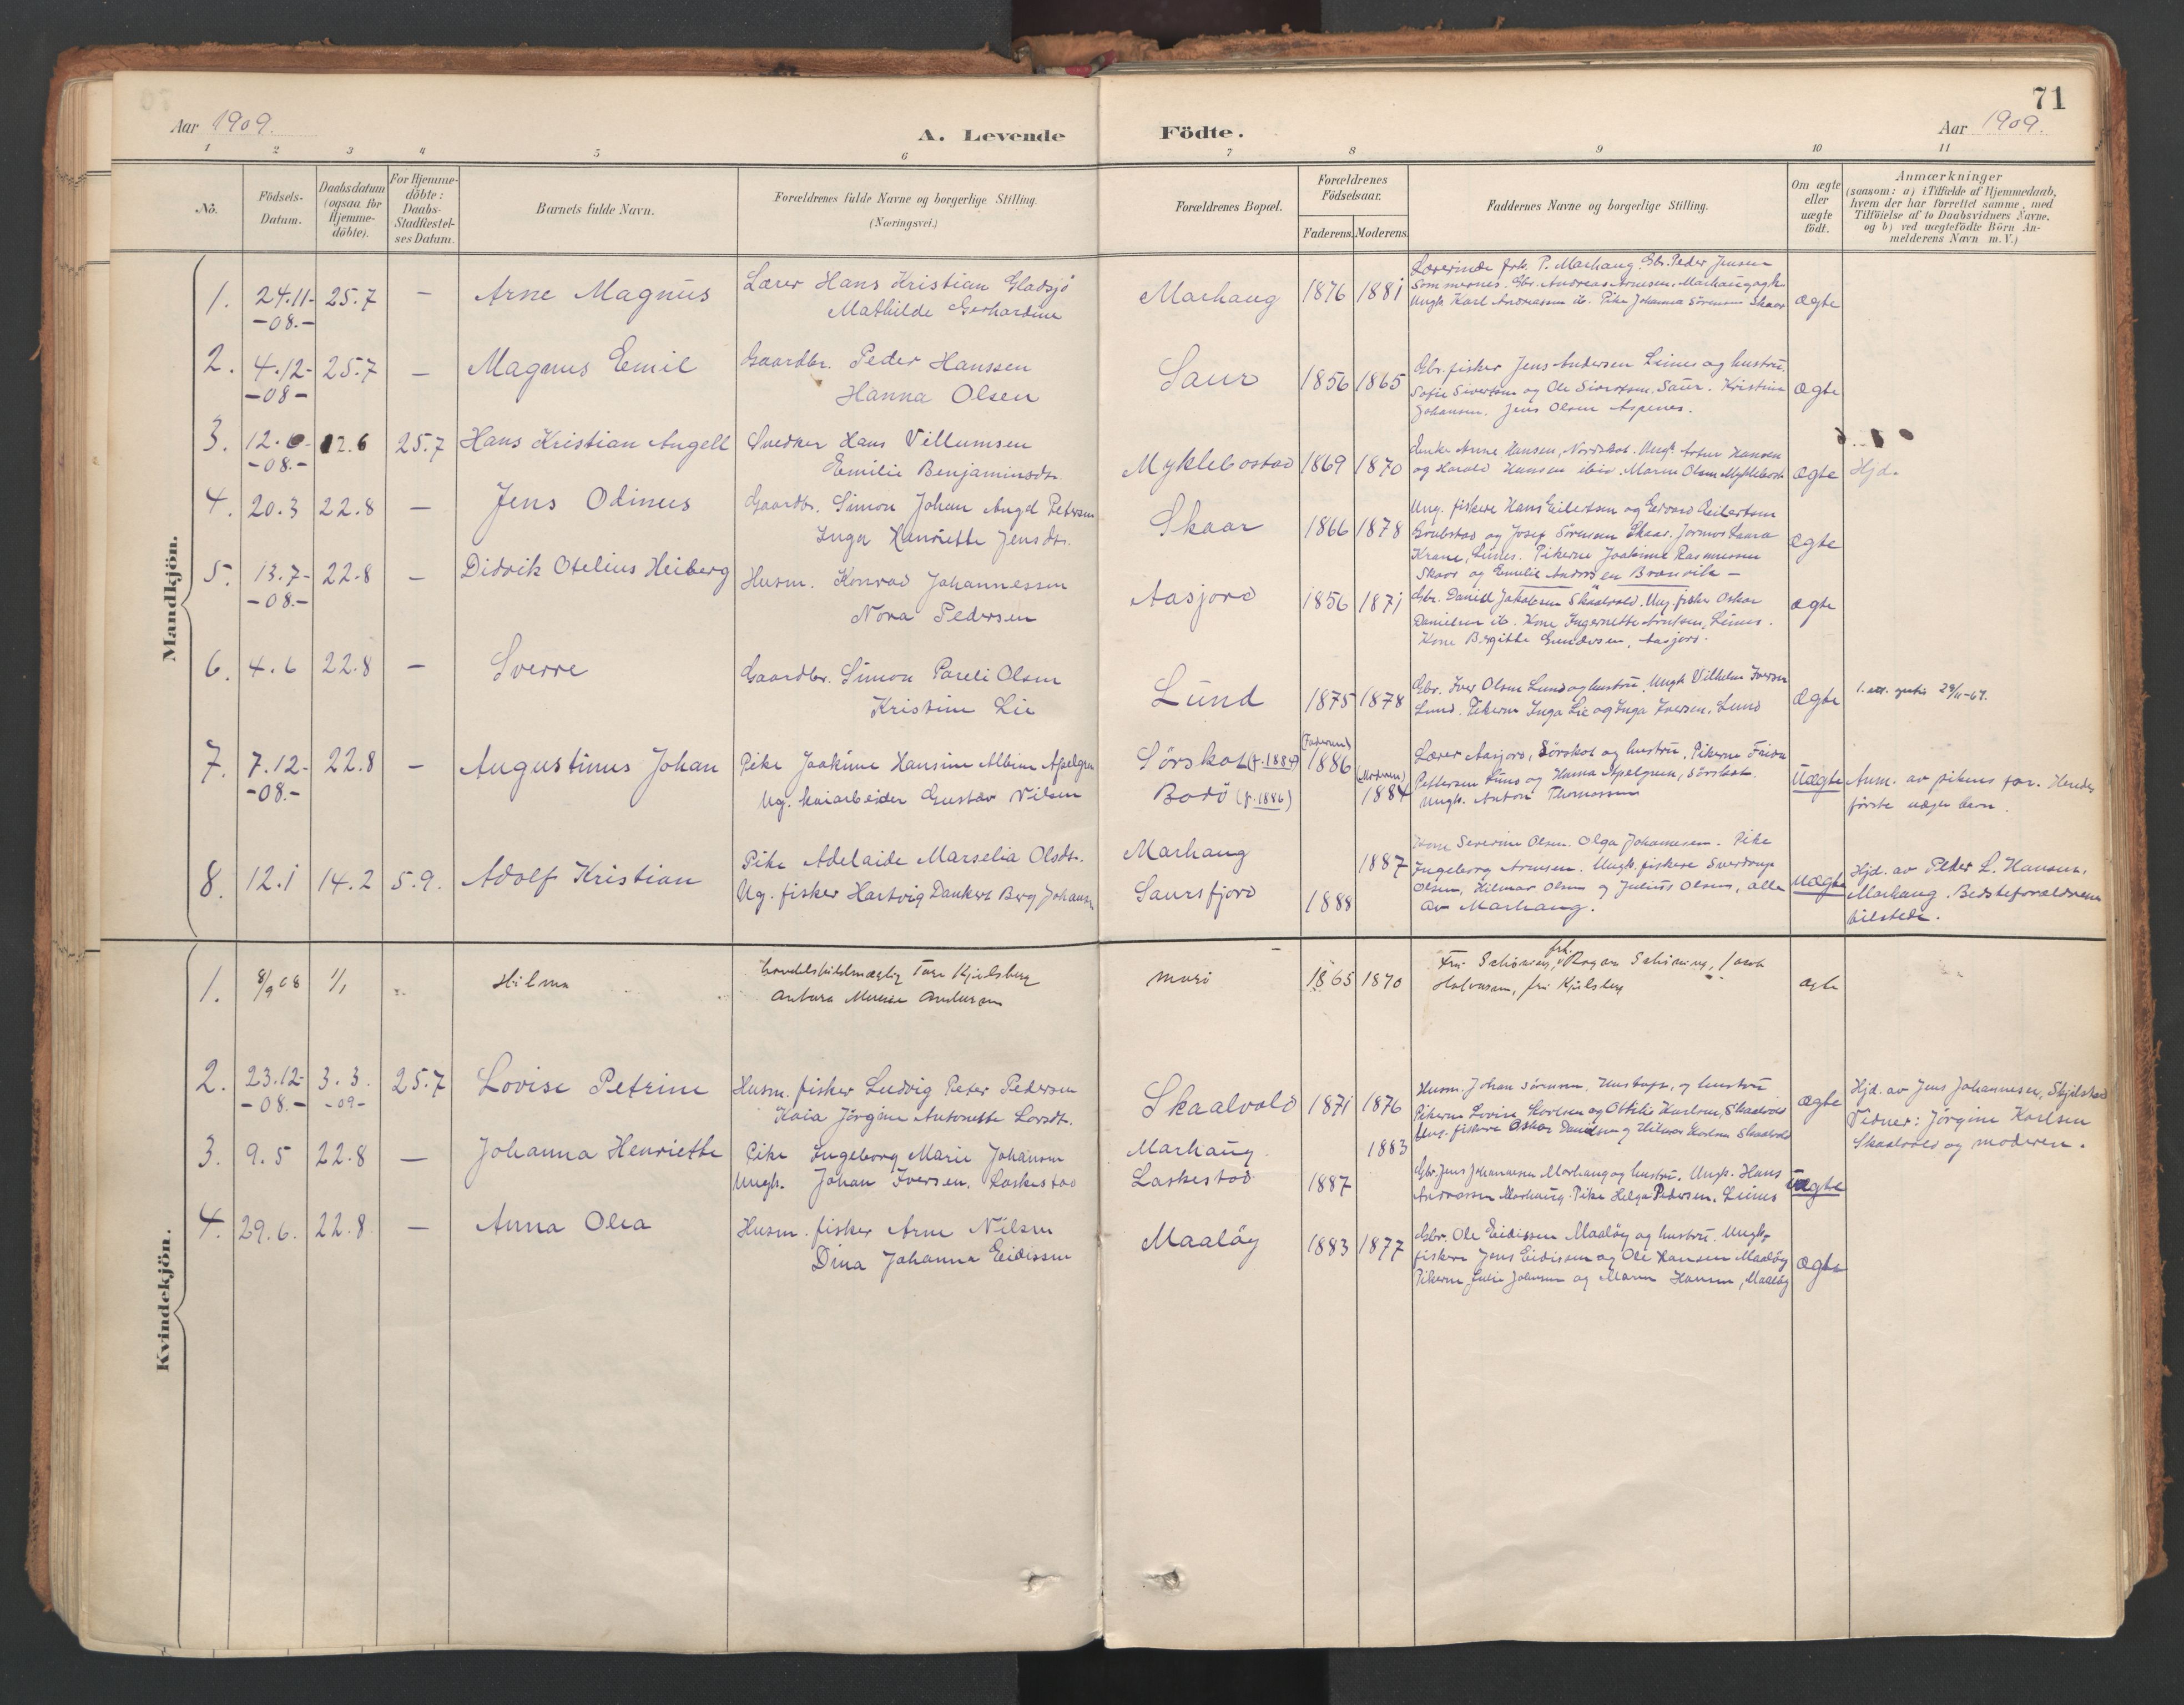 71
Aar 1909. A. Levende Födte. Aar 1909.
1 2 3 4 5 6 7 8 9 10 11
No.
Födsels-
Datum.
Daabsdatum
(ogsaa for
Hjemme-
döbte).
For Hjemme-
döbte:
Daabs-
Stadfæstel-
ses Datum.
Barnets fulde Navn.
Forældrenes fulde Navne og borgerlige Stilling.
(Næringsvei.)
Forældrenes Bopæl.
Forældrenes
Födselsaar.
Faderens. Moderens.
Faddernes Navne og borgerlige Stilling.
Om ægte
eller
uægte
födt.
Anmærkninger
(saasom: a) i Tilfælde af Hjemmedaab,
hvem der har forrettet samme, med
Tilföielse af to Daabsvidners Navne.
og b) ved uægtefödte Börn An-
melderens Navn m. V.)
Mandkjön.
1. 24.11- 25.7 – Arne Magnus Lærer Hans Kristian Gladsjö Marhaug 1876 1881 ægte
-08.- Mathilde Gerhardine
Lærerinde frk. P. Marhaug. Gbr. Peder Jensen
Sommernes. Gbr. Andreas Arnesen, Marhaug og k.
Ungk. Karl Andreassen ib. Pike Johanna Sörensen Skaar
2. 4.12- 25.7 – Magnus Emil Gaardbr. Peder Hanssen Saur 1856 1865 ægte
-08- Hanna Olsen
Gbr. fisker Jens Andersen Leines og hustru.
Sofie Sivertsen og Ole Sivertsen, Saur. Kristine
Johansen. Jens Olsen Aspenes.
3. 12.6 25.7 Hans Kristian Angell Snedker Hans Villumsen Myklebostad 1869 1870 ægte Hjd.
-08.- Emilie Benjaminsdtr.
Enke Anne Hansen, Nordskot. Ungk. Artur Hansen
og Harald Hansen ibid. Maren Olsen Myklebost.
4. 20.3 22.8 – Jens Odinus Gaardbr. Simon Johan Angel Petersen Skaar 1866 1878 ægte
Inga Hanriette Jensdtr.
Ung. fiskere Hans Eilertsen og Edvard Eilertsen
Grubstad og Josef Sörensen Skaar. Jormor Laura
Krane, Leines. Pikerne Joakime Rasmussen
Skaar og Emilie Andersen Brænvik –
5. 13.7- 22.8 – Didrik Otelius Heiberg Husm. Konrad Johannessen Aasjord 1856 1871 ægte
-08.- Nora Pedersen
Gbr. Daniel Jakobsen Skaalvold. Ung. fisker Oskar
Danielsen ib. Kone Ingernette Arntsen, Leines.
Kone Bergitte Gundersen, Aasjord.
6. 4.6 22.8 – Sverre Gaardbr. Simon Pareli Olsen Lund 1875 1878 ægte
Kristine Lie
Gbr. Iver Olsen Lund og hustru. Ungk. Vilhelm Iversen
Lund. Pikerne Inga Lie og Inga Iversen, Lund
7. 7.12- 22.8 – Augustinus Johan Pike Joakime Hansine Albine Apelgren Sörskot (f. 1884) (Faderens) 1886
-08.- Ug. kaiarbeider Gustav Nilsen Bodö (f. 1886) (Moderens) 1884 Uægte
Lærer Aasjord, Sörskot og hustru, Pikerne Frida
Pettersen Lund og Hanna Apelgren, Sörskot.
Ungk. Anton Thomassen
Anm. av pikens far. Hendes
förste uægte barn.
8. 12.1 14.2 5.9. Adolf Kristian Pike Adelaide Marselia Olsdtr. Marhaug 1887
Ug. fisker Hartvig Dankert Berg Johansen Saursfjord 1888 uægte
Kone Severine Olsen. Olga Johannesen. Pike
Ingeborg Arnesen. Ungk. fiskere Sverdrup
Olsen, Hilmar Olsen og Julius Olsen, alle
av Marhaug.
Hjd. av Peder L. Hansen,
Marhaug. Bedsteforældrene
tilstede.
Kvindekjön.
1. 8/9 08 1/1 Hilma Tore Kjelsberg 1865 1870 ægte
Andersen
Fru Schöning, frk. Ragna Schöning, Jacob
Halvorsen, fru Kjelsberg
2. 23.12- 3.3. 25.7 Lovise Petrine Husm. fisker Ludvig Peter Pedersen Skaalvold 1871 1876 ægte
-08.- -09- Kaia Jörgine Antonette Larsdt.
Husm. Johan Sörensen og hustru
Pikerne Lovise Karlsen og Ottilie Karlsen, Skaalvold
Ung. fiskere Oskar Danielsen og Hilmar Karlsen Skaalvold
Hjd. av Jens Johannesen, Skjelstad
Vidner: Jörgine Karlsen
Skaalvold og moderen.
3. 9.5 22.8 – Johanna Henriette Pike Ingeborg Marie Johansen Marhaug 1883
Ungk. Johan Iversen, Laskestad Laskestad 1887 uægte
Gbr. Jens Johannesen Marhaug og hustru. Ungk. Hans
Andreassen Marhaug. Pike Helga Pedersen, Leines
4. 29.6. 22.8 – Anna Olea Husm. fisker Arne Nilsen Maalöy 1883 1877 ægte
Dina Johanna Eidissen
Gbr. Ole Eidissen Maalöy og hustru. Ungk.
fiskere Jens Eidissen og Ole Hansen Maalöy
Pikerne Julie Johnsen og Maren Hansen, Maalöy